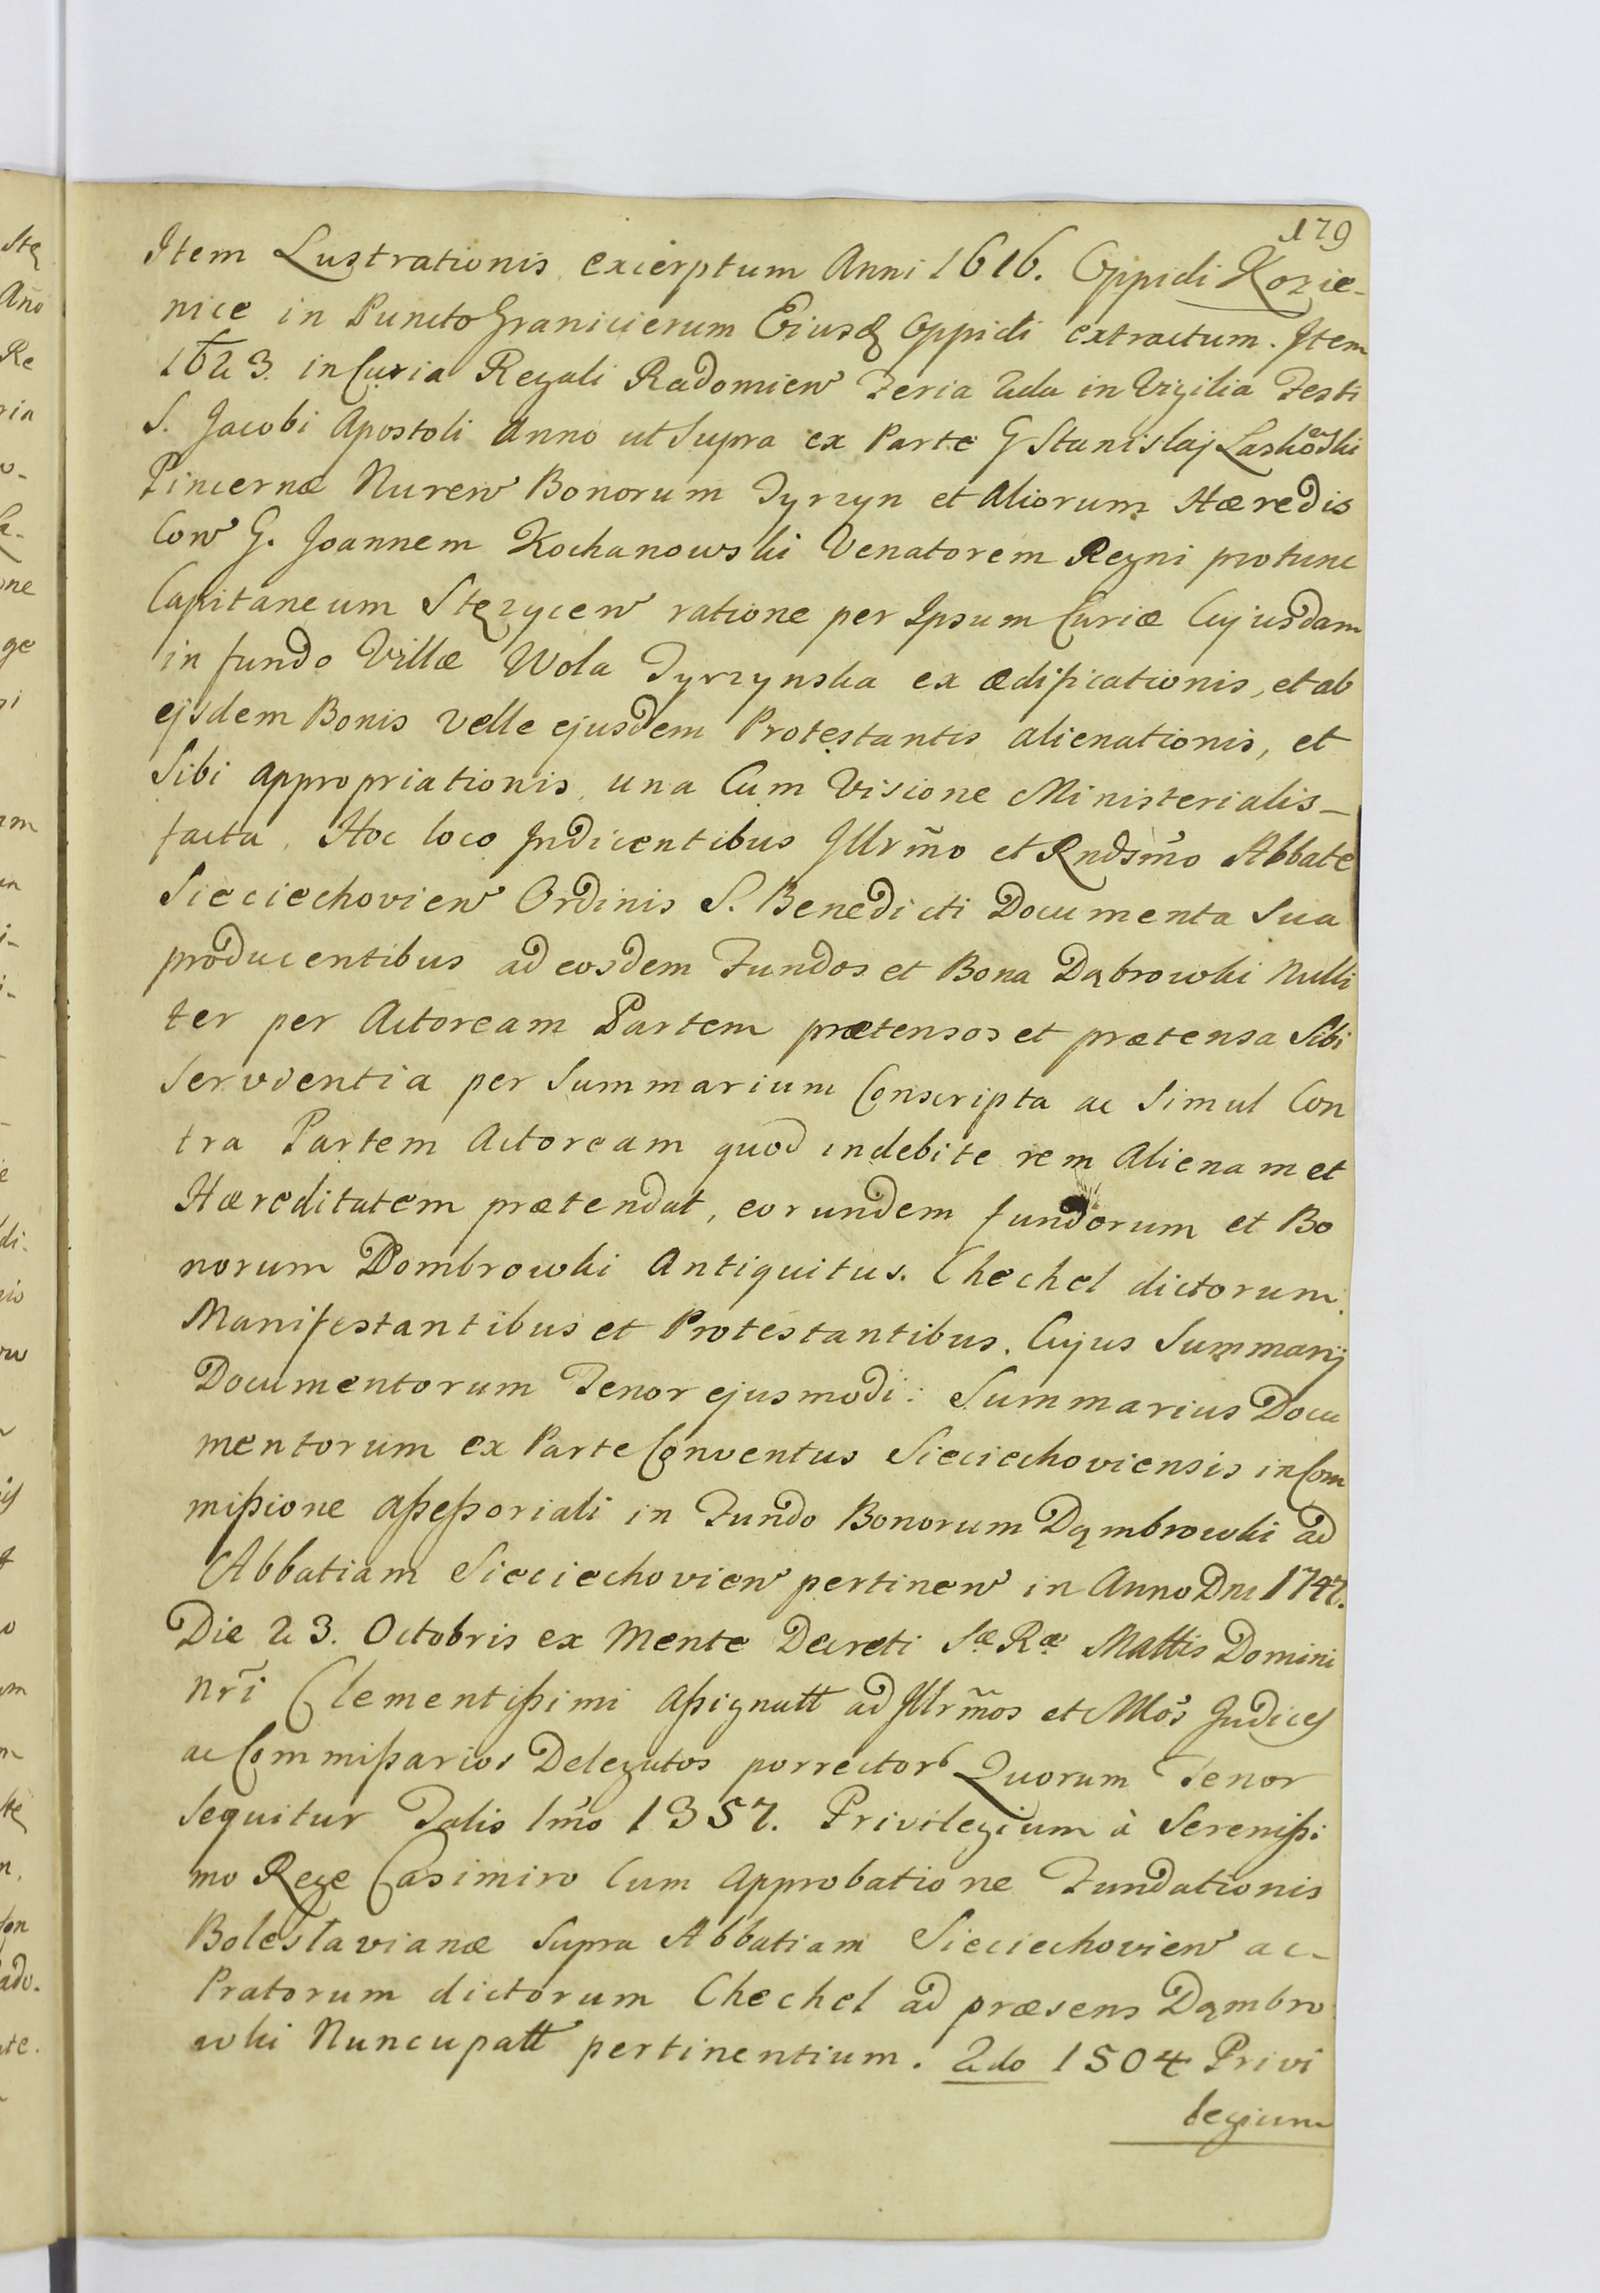 179
Item Lustrationis excerptum Anni 1616. Oppidi Kozie-
nice in Puncto Granicierum Eiusd Oppidi extractum. Item
1623. in Curia Regali Radomien Feria 2da in Vigilia Festi
S. Jacobi Apostoli Anno ut Supra ex Parte G Stanislaj Laskowski
Pincernæ Nuren Bonorum Tyrzyn et Aliorum Hæredis
Con G. Joannem Kochanowski Venatorem Regni protunc
Capitaneum Stęzycen ratione per Ipsum Curiæ Cujusdam
in fundo Villæ Wola Tyrzynska ex ædificationis, et ab
ejsdem Bonis velle ejusdem Protestantis alienationis, et
Sibi appropriationis una Cum Visione Ministerialis-
facta. Hoc loco Indicentibus Illrm̃o et Rndsm̃o Abbate
Sieciechovien Ordinis S. Benedicti Documenta Sua
producentibus ad eosdem Fundos et Bona Dąbrowki Nulli
ter per Actoream Partem prætensos et prætensa Sibi
Servientia per Summarium Conscripta ac Simul Con
tra Partem Actoream quod indebite rem Alienam et
Hæreditatem prætendat, eorundem fundorum et Bo
norum Dombrowki Antiquitus. Chechel dictorum.
Manifestantibus et Protestantibus. Cujus Summarij
Documentorum Tenor ejusmodi: Summarius Docu
mentorum ex Parte Conventus Sieciechoviensis in Com
mißione aßeßoriali in Fundo Bonorum Dąmbrowki ad
Abbatiam Sieciechovien pertinen in Anno Dni 1747.
Die 23. Octobris ex Mente Decreti Sæ Ræ Mattis Domini
nr̃i Clementißimi aßignatt ad Illrm̃os et Mos Judices
ac Commißarios Delegatos porrector Quorum Tenor
Sequitur Talis 1mo 1357. Privilegium à Sereniß:
mo Rege Casimiro Cum Approbatione Fundationis
Boleslavianæ Supra Abbatiam Sieciechovien ac-
Pratorum dictorum Chechel ad præsens Dąmbro
wki Nuncupatt pertinentium. 2do 1504 Privi
legium